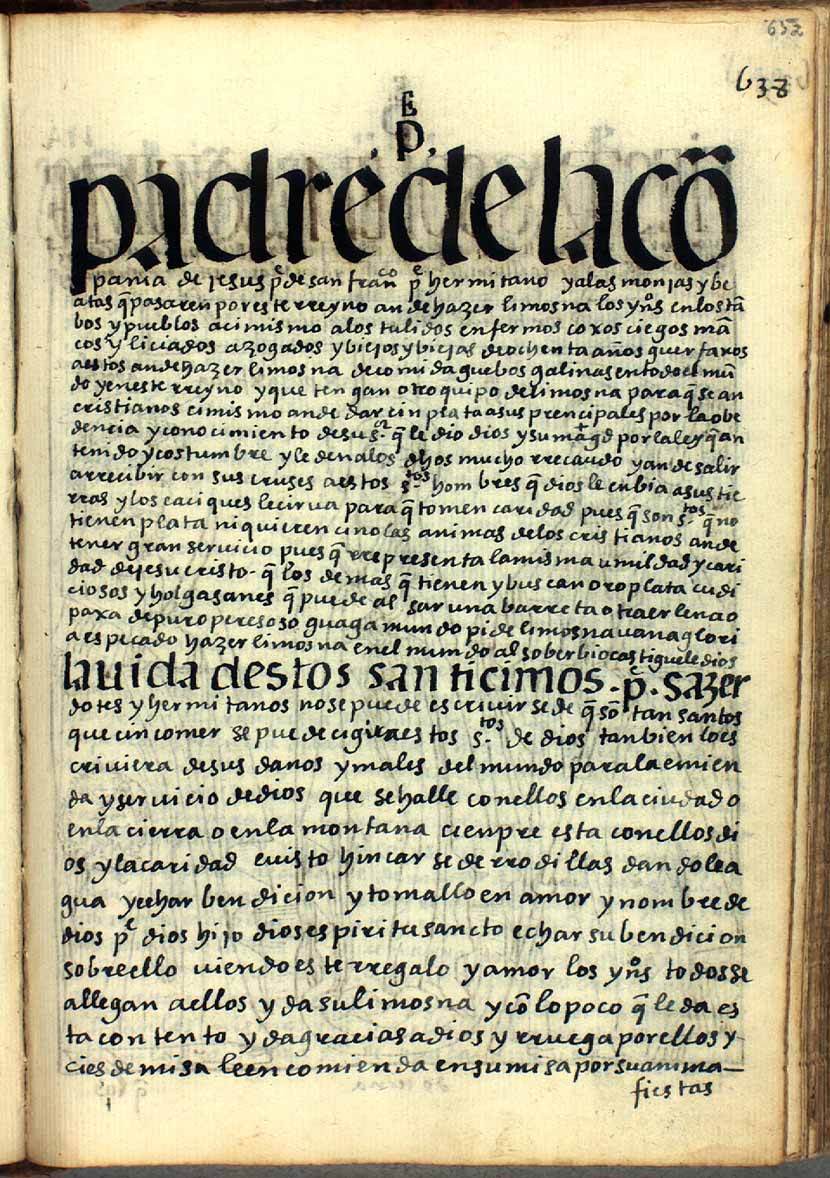 652
638
E
p.
padre de la cõ
pania de jesus pe de san franco pe hermitano y a las monjas y be
atas q̃ pasaren por este rreyno an de hazer limosna los yns̃ en los tã
bos y pueblos acimismo a los tulidos enfermos coxos ciegos mã
cos y liciados azogados y biejos y biejas de ochenta años guerfanos
a estos an de hazer limosna de comida guebos galinas en todo el mũ
do y en este rreyno y que tengan otro quipo de limosna para q̃ sean
cristianos cimismo an de dar cin plata a sus prencipales por la obe
dencia y conocimiento de su sor q̃ le dio dios y su magd por la ley q̃ an
tenido y costumbre y le den a los dhos mucho rrecaudo y an de salir
a rrecibir con sus cruses a estos stos hombres q̃ dios le enbia a sus tie
rras y los caciques le cirua para q̃ tomen caridad pues q̃ son stos q̃ no
tienen plata ni quieren cino las animas de los cristianos an de
tener gran seruicio pues q̃ rrepresenta la misma umildad y cari
dad de jesucristo - q̃ los demas q̃ tienen y buscan oro plata cudi
ciosos y holgasanes q̃ puede alsar una barreta o traer lena o
paxa de puro peresoso guagamundo pide limosna uanaglori
a es pecado hazer limosna en el mundo al soberbio castiguele dios
la uida destos santicimos - pe - sazer
dotes y hermitanos no se puede escriuir se de q̃ sõ tan santos
que cin comer se puede cigir a estos stos de dios tanbien lo es
criuiera de sus danos y males del mundo para la emien
da y seruicio de dios que se halle con ellos en la ciudad o
en la cierra o en la montana cienpre esta con ellos di
os y la caridad e uisto hincarse de rrodillas dandole a
gua y echar bendicion y tomallo en amor y nombre de
dios pe dios hijo dios espiritu sancto echar su bendicion
sobre ello uiendo este rregalo y amor los yns̃ todos se
allegan a ellos y da su limosna y cõ lo poco q̃ le da es
ta contento y da gracias a dios y rruega por ellos y
ci es de misa le encomienda en su misa por su anima —
fiestas